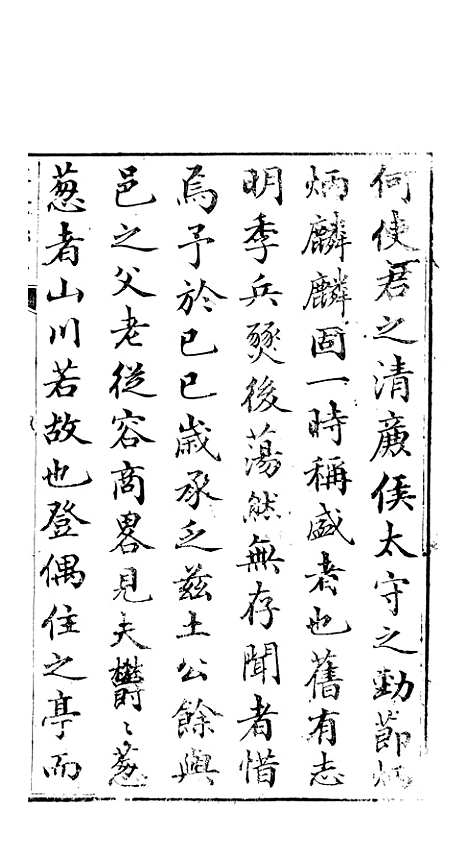 何使君之清廉侯太守之勁節炳
炳麟麟固一時稱盛者也舊有志
明季兵燹後蕩然無存聞者惜
焉予於己巳歲承乏茲土公餘與
邑之父老從容商畧見夫鬱〻葱
葱者山川若故也登偶住之亭而